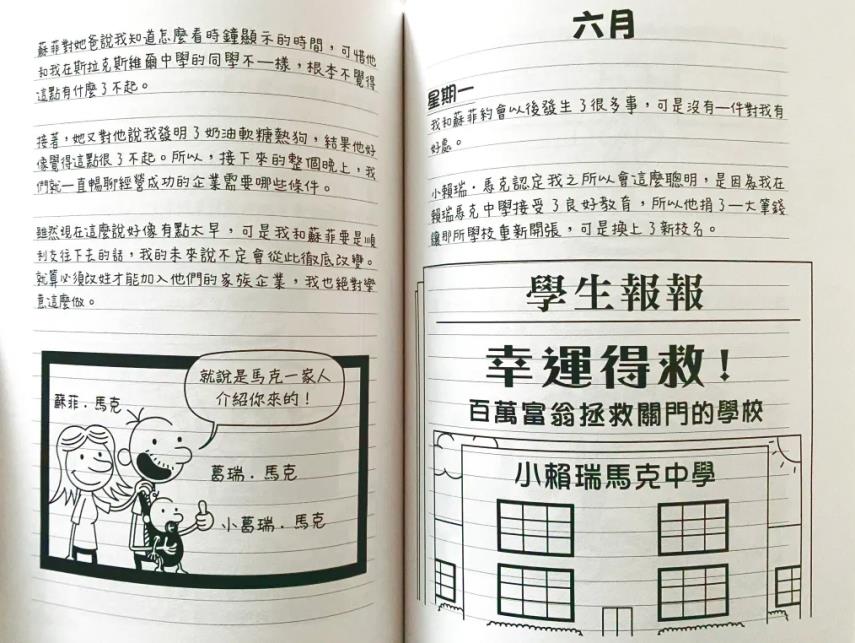 蘇菲對她爸說我知道怎麼看時鐘顯示的時間，可惜他
和我在斯拉克斯維爾中學的同學不一樣，根本不覺得
這點有什麼了不起。
接著，她又對他說我發明了奶油軟糖熱狗，結果他好
像覺得這點很了不起。所以，接下來的整個晚上，我
們就一直暢聊經營成功的企業需要哪些條件。
雖然現在這麼說好像有點太早，可是我和蘇菲要是順
利交往下去的話，我的未來說不定會從此徹底改變。
就算必須改姓才能加入他們的家族企業，我也絕對樂
意這麼做。
就說是馬克一家人
介紹你來的！
蘇菲．馬克
葛瑞．馬克
小葛瑞．馬克
六月
星期一
我和蘇菲約會以後發生了很多事，可是沒有一件對我有
好處。
小賴瑞．馬克認定我之所以會這麼聰明，是因為我在
賴瑞馬克中學接受了良好教育，所以他捐了一大筆錢
讓那所學校重新開張，可是換上了新校名。
學生報報
幸運得救！
百萬富翁拯救關門的學校
小賴瑞馬克中學